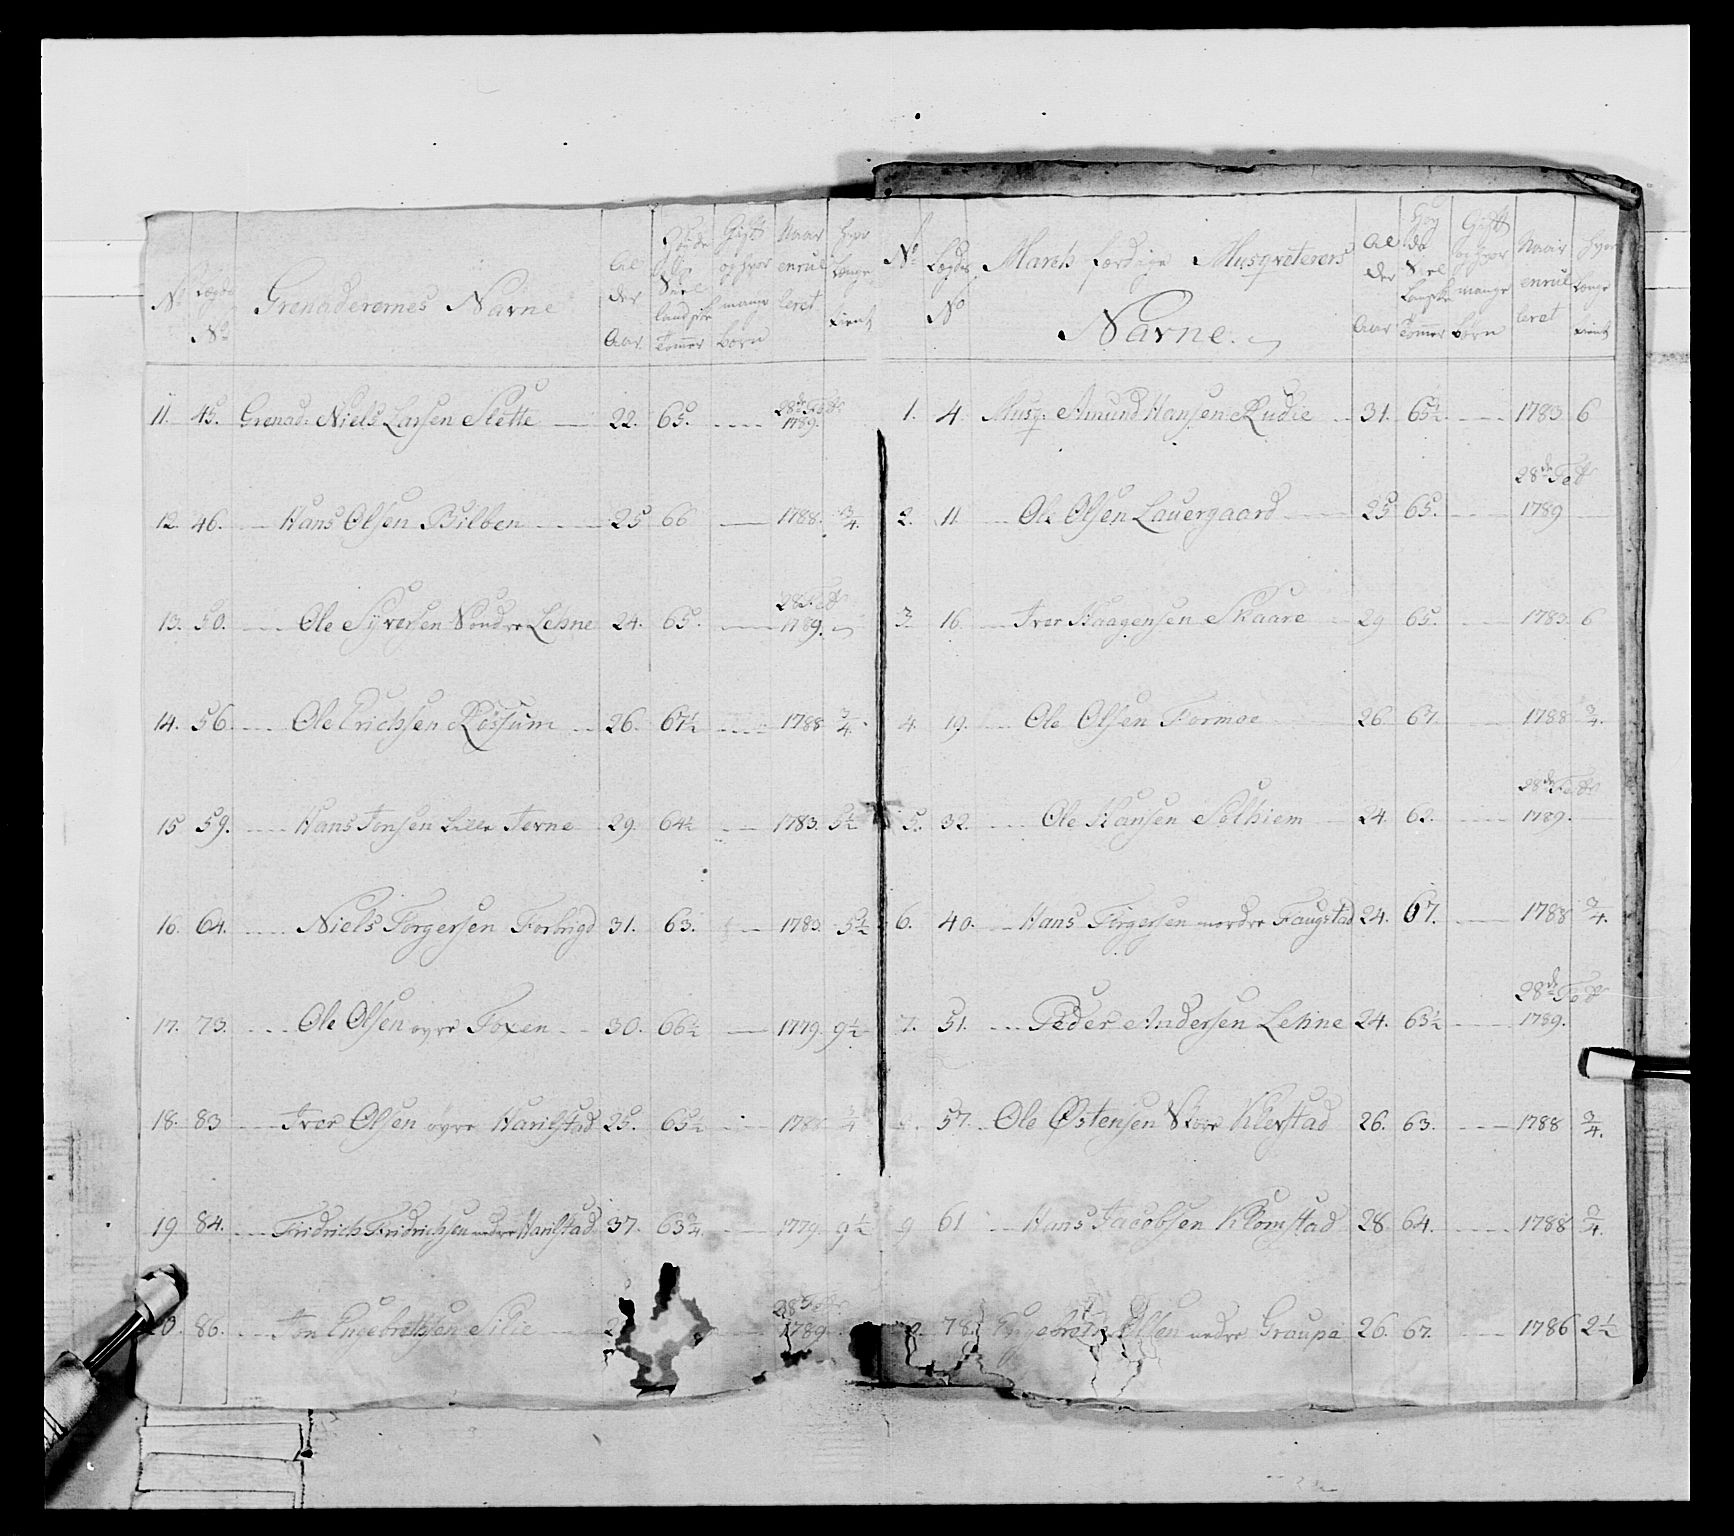 No Lægds No Grenaderernes Navne Alder Aar Høide Siællandske Tommer Gift og hvor mange Børn Naar enrulleret Hvor Længe tient
11. 45. Grenad: Niels Larsen Slette 22. 65. 28de Feb 1789.
12. 46. Hans Olsen Bilben 25 66 1788. 3/4.
13. 50. Ole Syversen Søndre Lehne 24. 65. 28 Feb 1789.
14. 56. Ole Erichsen Røssum 26. 67½ 1788 3/4.
15 59. Hans Jonsen Lille Terne 29. 64½ 1783. 5½
16. 64. Niels Torgersen Forbrigd 31. 63. 1783. 5½
17. 73. Ole Olsen øvre Foxen 30. 66½ 1779. 9½
18. 83 Iver Olsen øvre Harilstad 25. 65½ 1788 3/4
19 84. Fridrich Fridrichsen nedre Harilstad 37. 63¾. 1779. 9½
20. 86. Jon Engebretsen Silie 28 Feb 1789.
No Lægds No March færdige Musqveterers Navne. Alder Aar Høyde Siællandske Tommer Gift og hvor mange børn Naar enrulleret Hvor Længe tient
1. 4. Musq: Amund Hansen Rudie 31. 65½ 1783 6
2. 11 Ole Olsen Lauergaard 25 65. 28de Feb 1789
3 16 Iver Haagensen Skaare 29 65. 1783. 6
4. 19. Ole Olsen Formoe 26. 67. 1788 3/4.
5. 32. Ole Hansen Solhiem 24. 62. 28de Feb 1789.
6. 40. Hans Torgersen nordre Faugstad 24. 67. 1788 3/4.
7. 51. Peder Andersen Lehne 24. 63½ 28de Feb 1789.
57. Ole Østensen Store Klevstad 26. 63. 1788 3/4.
9 61 Hans Jacobsen Klomstad 28. 64. 1788 3/4.
78 Engebret Olsen nedre Graupe 26. 67. 1786 2½